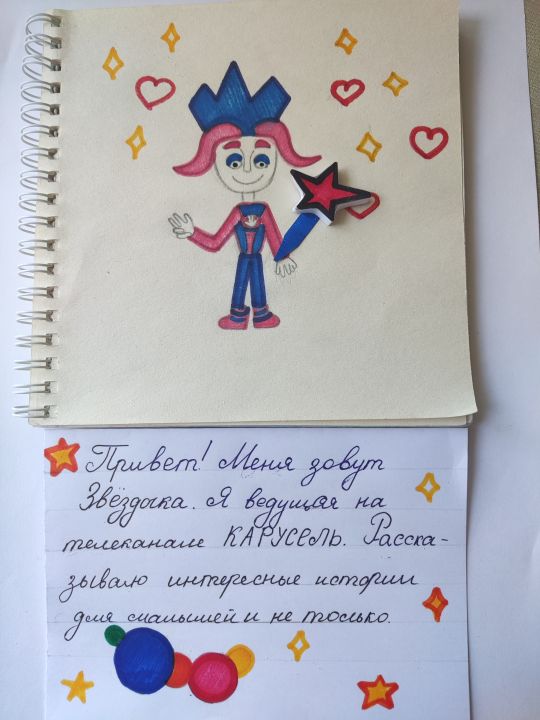 Привет! Меня зовут
Звёздочка. Я ведущая на
телеканале КАРУСЕЛЬ. Расска-
зываю интересные истории
для малышей и не только.